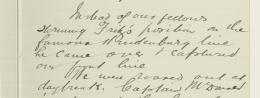 Instead of our fellows
storming Fritz's position on the
famous Hindenburg line
he came over & captured
our front line
We were roused out at
daybreak. Captain McDonald